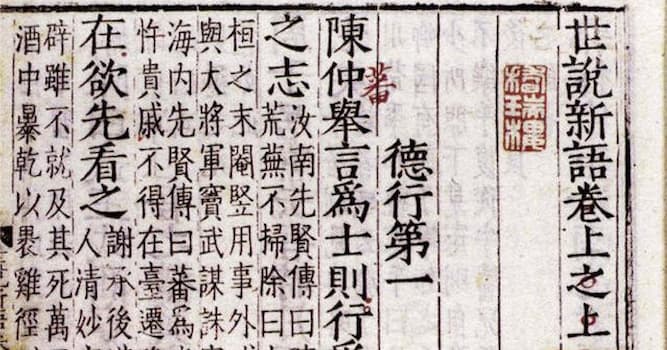 世說新語卷上之上
德行第一
陳仲舉言爲士則行
蕃
之志
汝南先賢傳曰
荒蕪不掃除曰
桓之末閹豎用事外
與大將軍竇武謀誅
海内先賢傳曰蕃爲
忤貴戚不得在臺遷
在欲先看之
謝承後
人清妙
辟雖不就及其死萬
酒中暴乾以裹雞徑